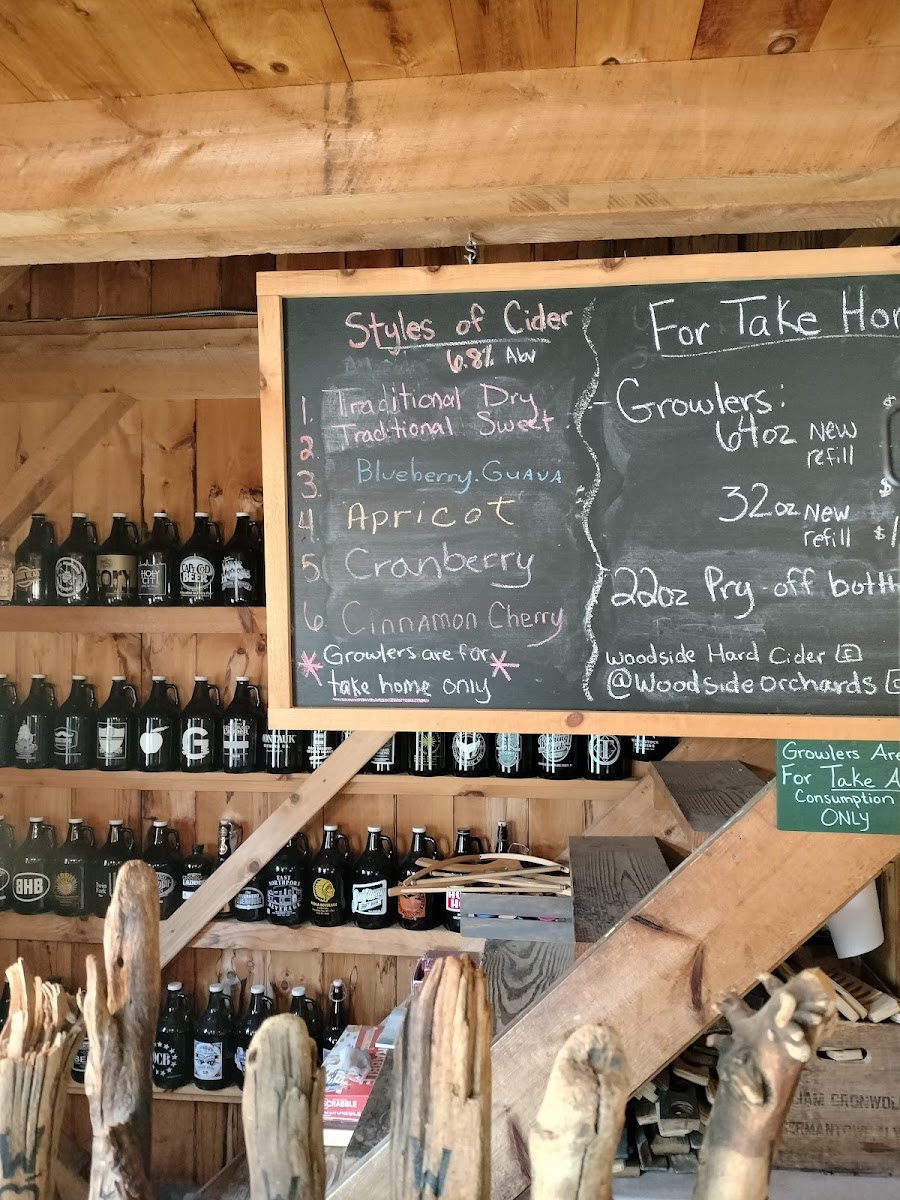 Styles of Cider
6.8% Abv
1. Traditional Dry
2 Traditional Sweet
3. Blueberry.Guava
4. Apricot
5. Cranberry
6 Cinnamon Cherry
*Growlers are for*
take home only
For Take Hom
Growlers:
64oz New
refill
32oz New
refill $1
22oz Pry-off bott
Woodside Hard Cider
@Woodsideorchards
Growlers Are
For Take A
Consumption
ONLY
CAPE COD
BEER
G
BHB
EAST
NORTHPORT
BEVERAGE
SCRABBLE
W
W